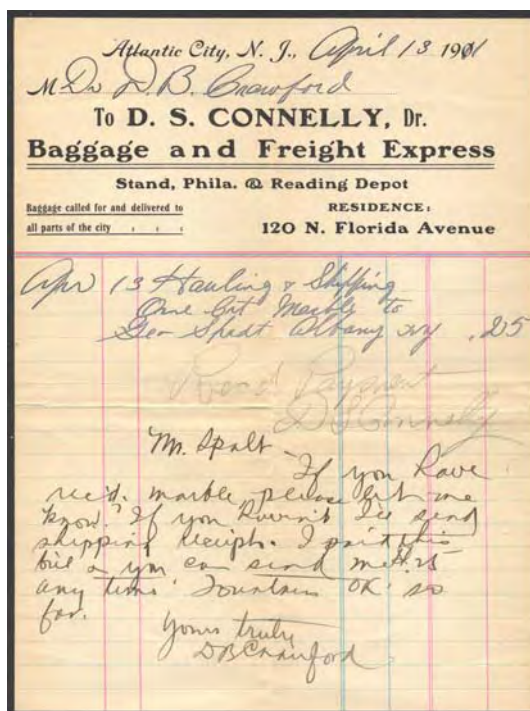 Atlantic City, N. J., April 13 1901
M Dr D. B. Crawford
To D. S. CONNELLY, Dr.
Baggage and Freight Express
Stand, Phila. & Reading Depot
Baggage called for and delivered to
all parts of the city
RESIDENCE:
120 N. Florida Avenue
Apr 13 Hauling & Shipping
One Crt Marble to
Geo Spalt Albany NY .25
Recd Payment
D S Connelly
Mr. Spalt -
If you have
rec'd. marble please let me
know. If you haven't I'll send
shipping receipt. I paid this
bill & you can send me .25
any time. Fountain OK so
far.
Yours truly
D B Crawford